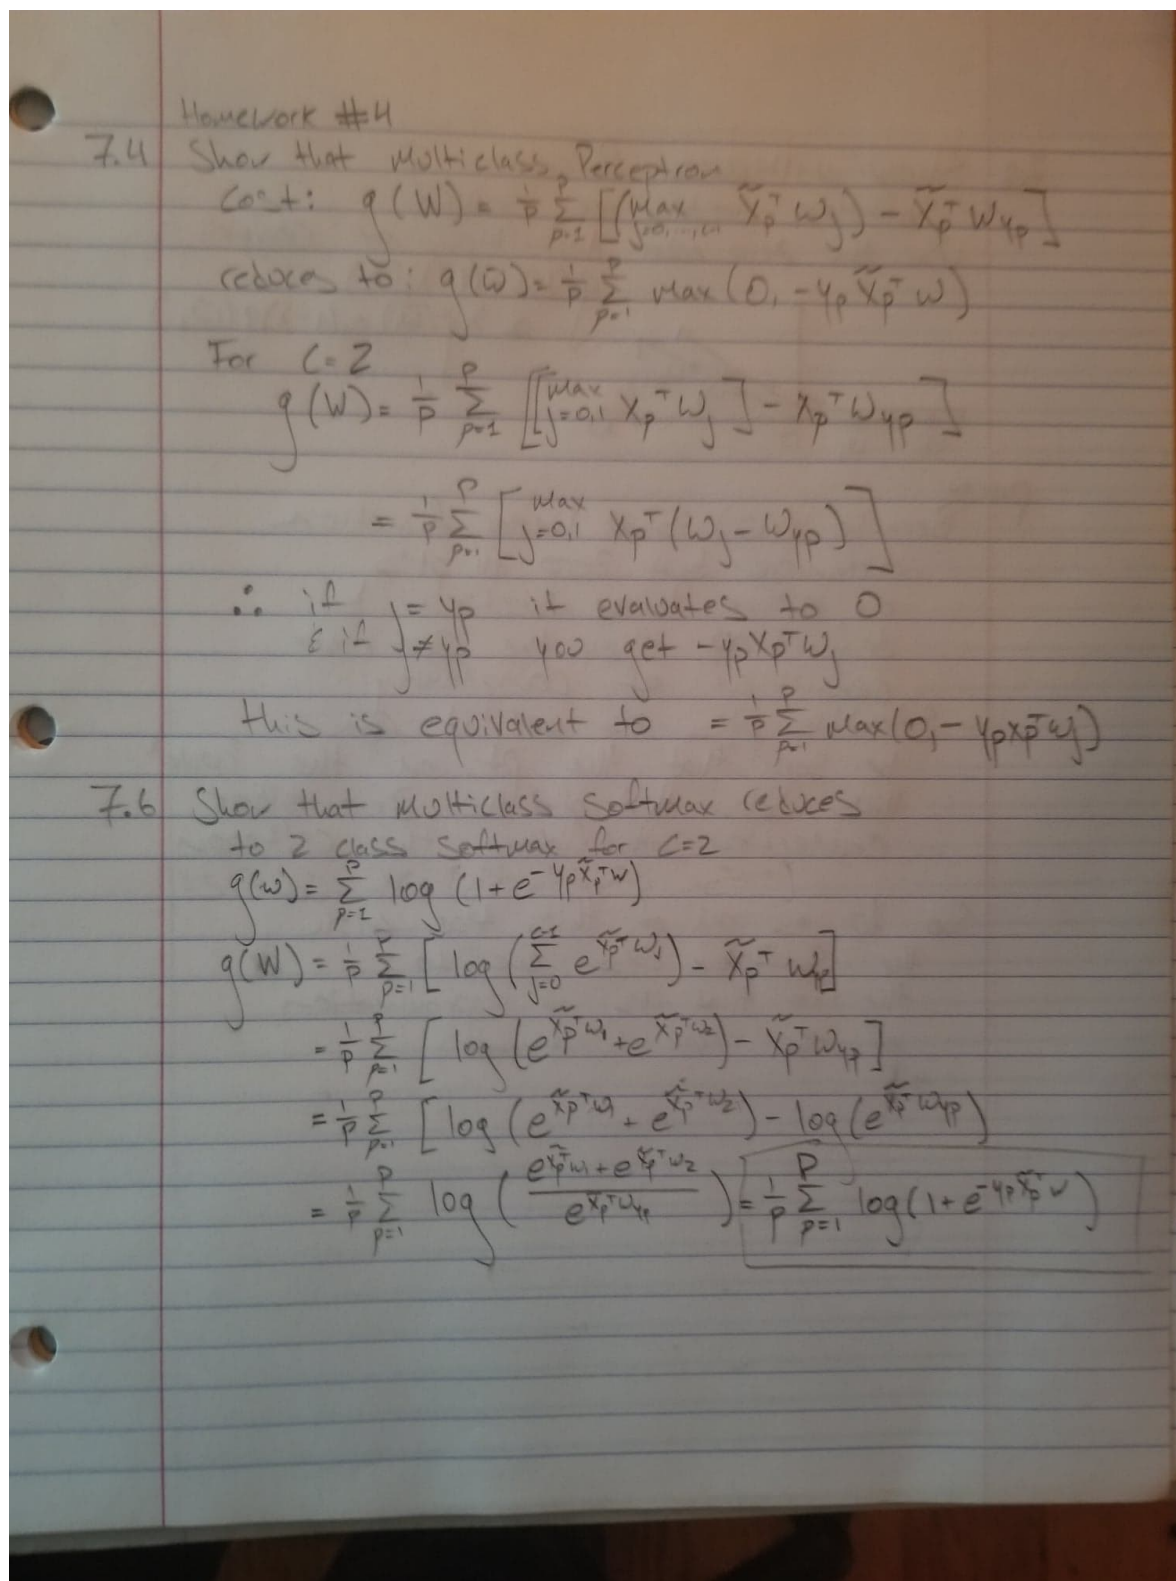 Homework #4
7.4 Show that Multiclass Perceptron
Cost: g(W) = 1/P Σ_{p=1}^{P} [(max_{j=0,...,C-1} x̃_p^T w_j) - x̃_p^T w_{y_p}]
reduces to: g(w) = 1/P Σ_{p=1}^{P} max(0, -y_p x̃_p^T w)
For C=2
g(W) = 1/P Σ_{p=1}^{P} [[max_{j=0,1} x_p^T w_j] - x_p^T w_{y_p}]
= 1/P Σ_{p=1}^{P} [max_{j=0,1} x_p^T (w_j - w_{y_p})]
∴ if j = y_p it evaluates to 0
& if j ≠ y_p you get -y_p x_p^T w_j
this is equivalent to = 1/P Σ_{p=1}^{P} max(0, -y_p x_p^T w_j)
7.6 Show that Multiclass Softmax reduces
to 2 class Softmax for C=2
g(w) = Σ_{p=1}^{P} log(1 + e^{-y_p x̃_p^T w})
g(W) = 1/P Σ_{p=1}^{P} [log(Σ_{j=0}^{C-1} e^{x̃_p^T w_j}) - x̃_p^T w_{y_p}]
= 1/P Σ_{p=1}^{P} [log(e^{x̃_p^T w_1} + e^{x̃_p^T w_2}) - x̃_p^T w_{y_p}]
= 1/P Σ_{p=1}^{P} [log(e^{x̃_p^T w_1} + e^{x̃_p^T w_2}) - log(e^{x̃_p^T w_{y_p}})
= 1/P Σ_{p=1}^{P} log((e^{x̃_p^T w_1} + e^{x̃_p^T w_2}) / e^{x̃_p^T w_{y_p}}) = 1/P Σ_{p=1}^{P} log(1 + e^{-y_p x̃_p^T w})